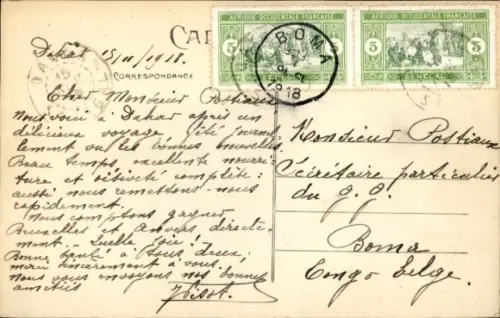 CA
AFRIQUE OCCIDENTALE FRANÇAISE
5
5
SENEGAL
AFRIQUE OCCIDENTALE FRANÇAISE
5
5
SENEGAL
BOMA
1918
Dakar 15/11/1918.
CORRESPONDANCE
Cher Monsieur Postiaux
Nous voici à Dakar après un
délicieux voyage.
lement vu les bonnes nouvelles
Beau temps, excellente nourri-
ture et oisiveté complète:
aussi nous remettons-nous
rapidement.
Nous comptons gagner
Bruxelles et Anvers directe-
ment. - Quelle joie!
Bonne santé à tous deux,
merci sincèrement à vous.
Nous vous envoyons nos bonnes
amitiés
Monsieur Postiaux
Sécrétaire particulier
du G. G.
Boma
Congo Belge.